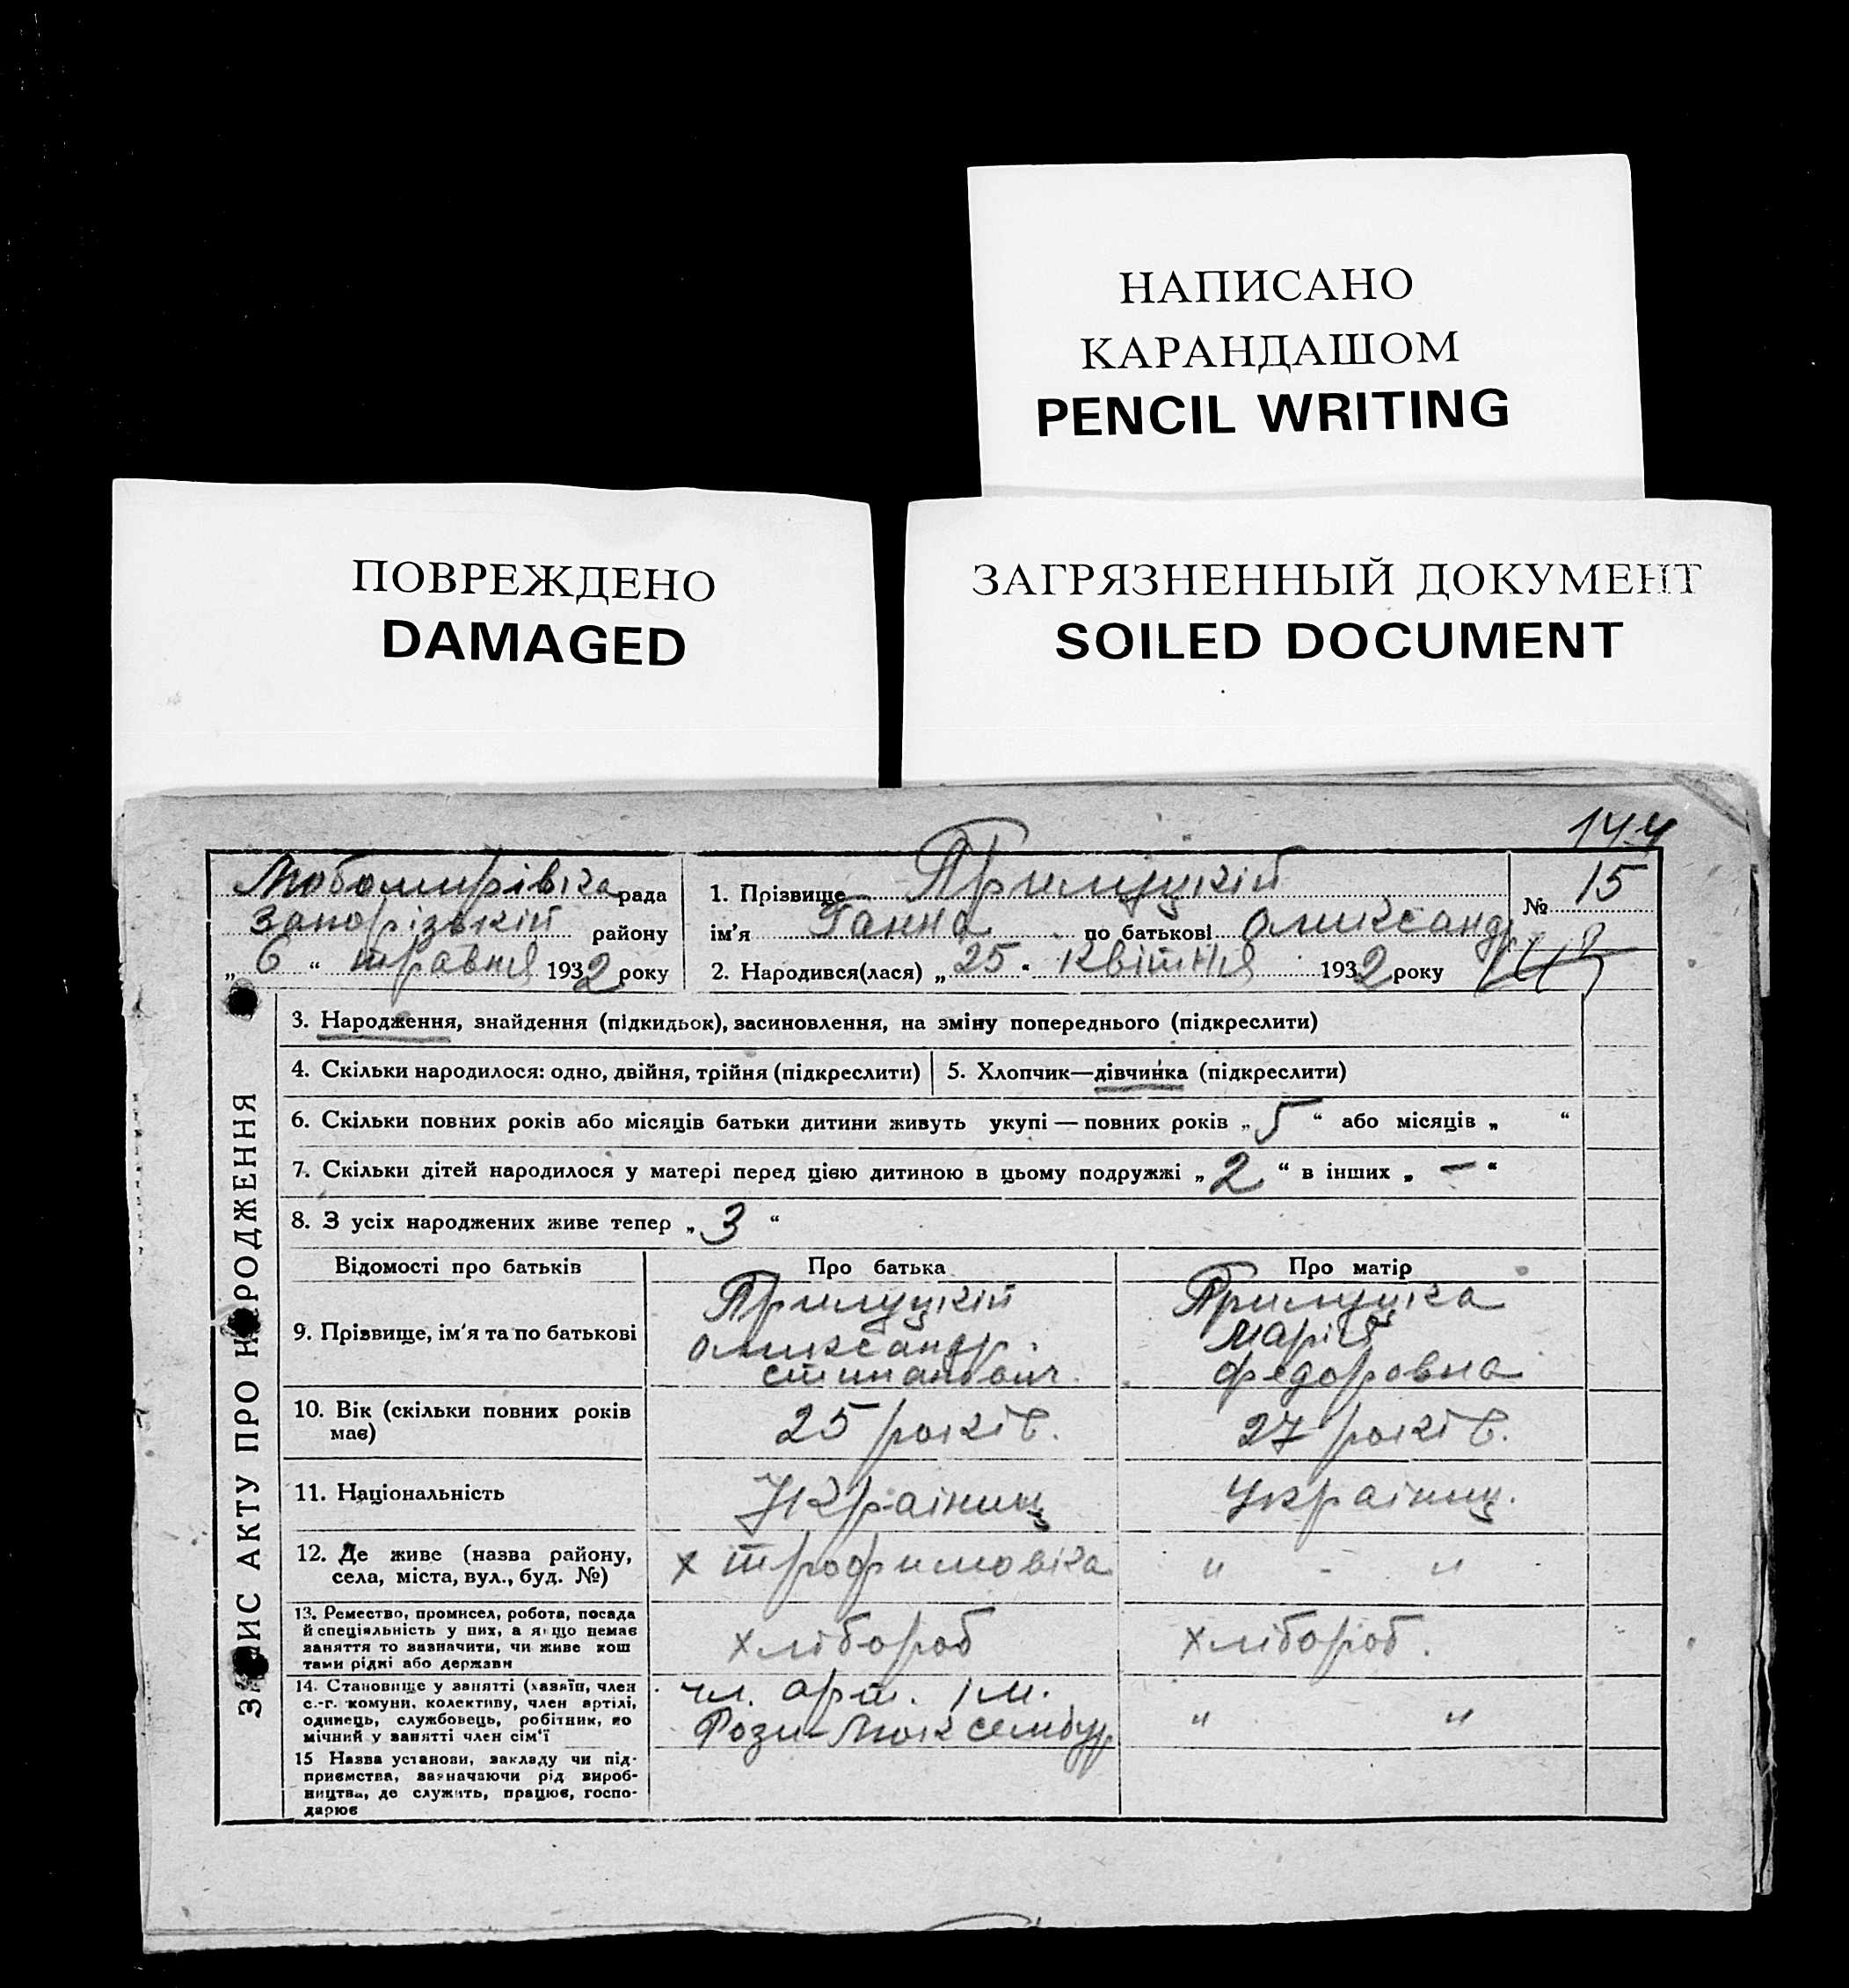 НАПИСАНО
КАРАНДАШОМ
PENCIL WRITING
ПОВРЕЖДЕНО
DAMAGED
ЗАГРЯЗНЕННЫЙ ДОКУМЕНТ
SOILED DOCUMENT
144
Любомирівка рада
Запорізький району
„ 6 “ травня 1932 року
1. Прізвище Прилуцкій
ім'я Ганна по батькові Олександр
2. Народився(лася) „ 25 “ Квітня 1932 року
№ 15
ЗАПИС АКТУ ПРО НАРОДЖЕННЯ
3. Народження, знайдення (підкидьок), засиновлення, на зміну попереднього (підкреслити)
4. Скільки народилося: одно, двійня, трійня (підкреслити)
5. Хлопчик—дівчинка (підкреслити)
6. Скільки повних років або місяців батьки дитини живуть укупі — повних років „ 5 “ або місяців „ “
7. Скільки дітей народилося у матері перед цією дитиною в цьому подружжі „ 2 “ в інших „ — “
8. З усіх народжених живе тепер „ 3 “
Відомості про батьків
Про батька
Про матір
9. Прізвище, ім'я та по батькові
Прилуцкій
Олександр
Прилуцка
Марія
Федоровна
10. Вік (скільки повних років
має)
25 років.
27 років.
11. Національність
Україниц
Україниц.
12. Де живе (назва району,
села, міста, вул., буд. №)
х Трофимовка
„ - „
13. Ремество, промисел, робота, посада
й спеціяльність у них, а якщо немає
заняття то зазначити, чи живе кош
тами рідні або держави
хлібороб
хлібороб.
14. Становище у занятті (хазяїн, член
с.-г. комуни, колективу, член артілі,
одинець, службовець, робітник, по
мічний у занятті член сім'ї
чл. арт. ім.
Рози-Люксембур
„ „
15 Назва установи, закладу чи під-
приємства, зазначаючи рід вироб-
ництва, де служить, працює, госпо-
дарює